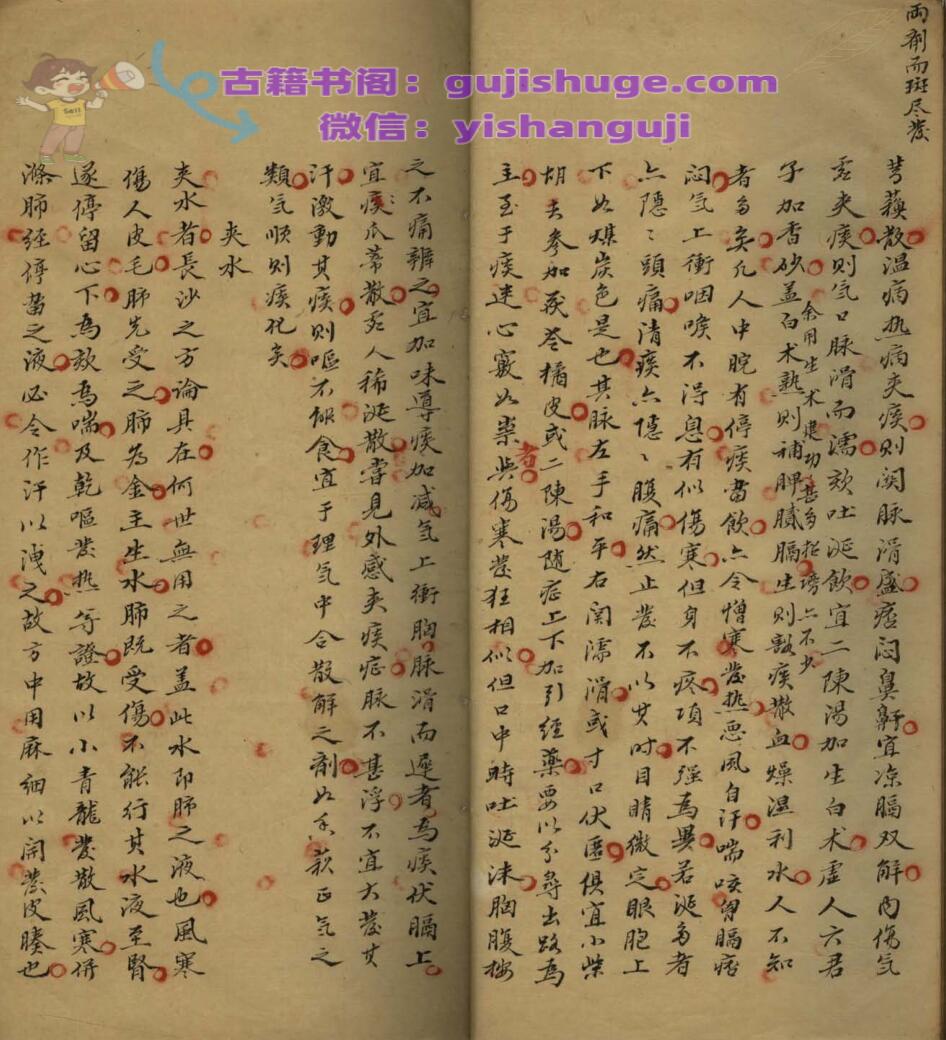 古籍书阁：gujishuge.com
微信：yishanguji
两剂而斑尽发
芎蘇散温病热病夹痰则関脉滑盛痞闷鼻鼾宜凉膈双解内傷气
夹痰则气口脉滑而濡欬吐涎飲宜二陳湯加生白术虚人六君
子加香砂盖白术熟则補脾膩膈生则豁痰散血燥湿利水人不知
余用生术建功甚多招谤亦不少
者多矣凡人中脘有停痰畜飲亦令憎寒發热悪風自汗喘咳胃膈痞
闷气上衝咽喉不得息有似傷寒但身不疼項不强為異若涎多者
亦隱隱頭痛清痰亦隱隱腹痛然止發不以时目睛微定眼胞上
下如煤炭色是也其脉左手和平右関濡滑或寸口伏匿俱宜小柴
胡去参加茯苓橘皮或二陳湯随症上下加引經藥要以分尋出路為
主至于痰迷心竅如祟者與傷寒發狂相似但口中時吐涎沫胸腹按
之不痛辨之宜加味導痰加减气上衝胸脉滑而遲者為痰伏膈上
宜瓜蒂散人稀涎散嘗見外感夹痰症脉不甚浮不宜大發其
汗激動其痰则嘔不能食宜于理气中合散解之剤如正气之
類气順则痰化矣
夾水
夾水者長沙之方論具在何世無用之者盖此水即肺之液也風寒
傷人皮毛肺先受之肺為金主生水肺既受傷不能行其水液至腎
遂停留心下為欬為喘及乾嘔發热等證故以小青龍發散風寒併
滌肺經停畜之液必令作汗以洩之故方中用麻細以開發皮腠也